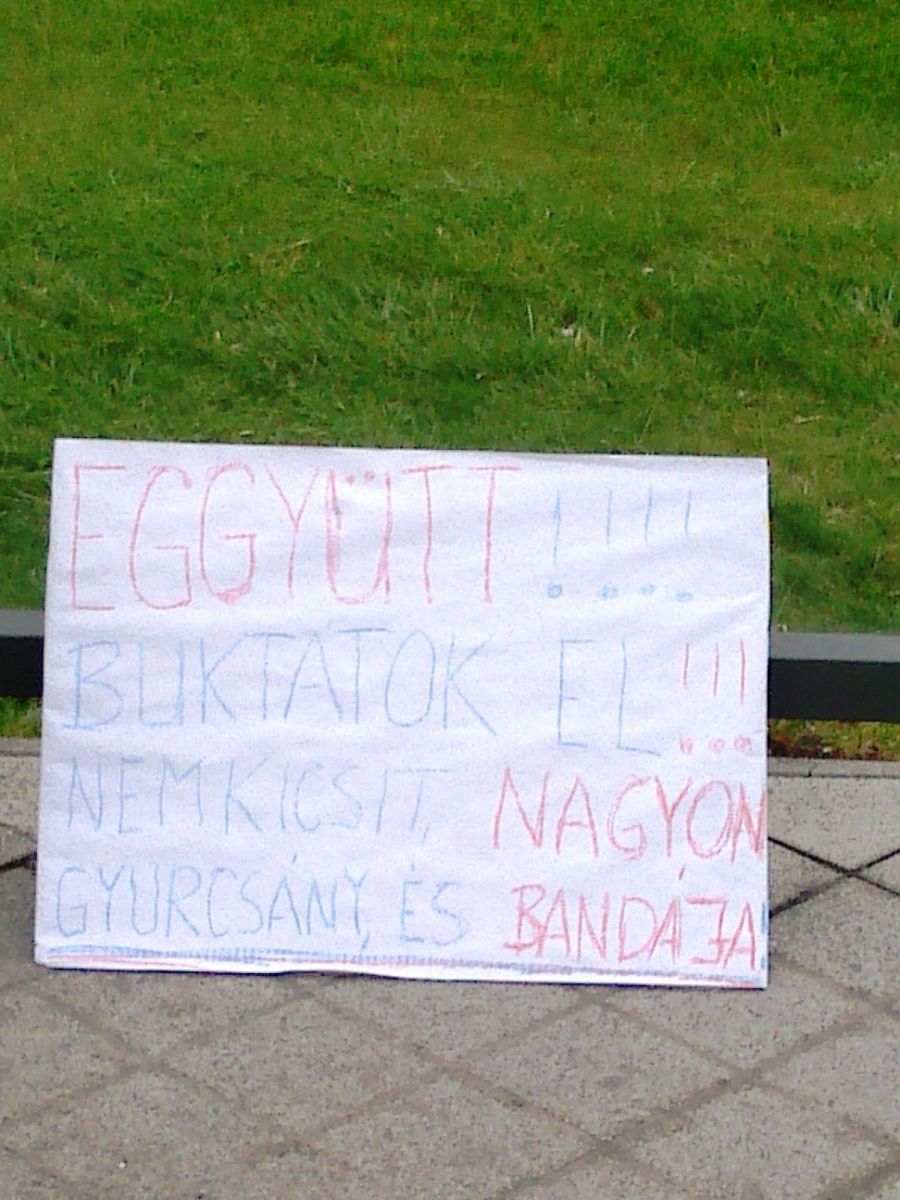 EGGYÜTT !!!!
BUKTATOK EL !!!
NEM KICSIT, NAGYON
GYURCSÁNY, ÉS BANDÁJA